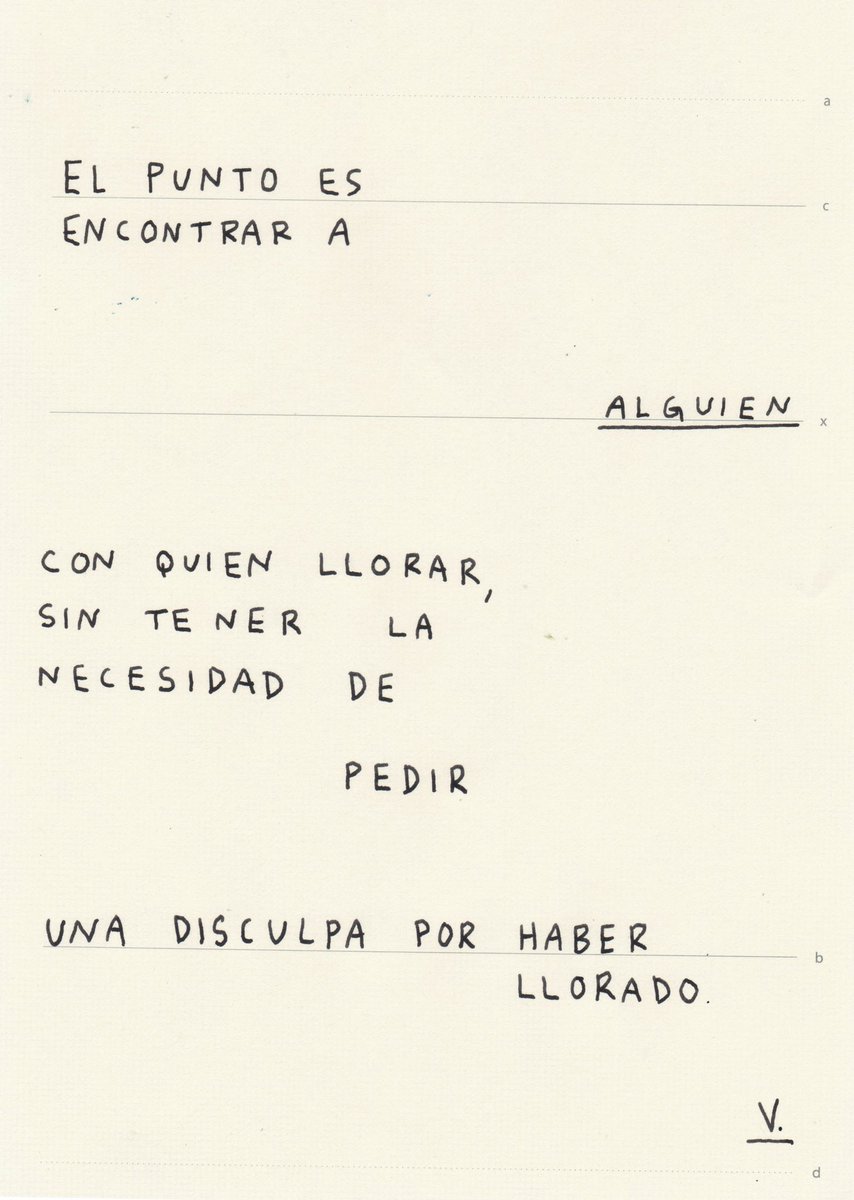 a
EL PUNTO ES
c
ENCONTRAR A
ALGUIEN
x
CON QUIEN LLORAR,
SIN TENER LA
NECESIDAD DE
PEDIR
UNA DISCULPA POR HABER
b
LLORADO.
V.
d